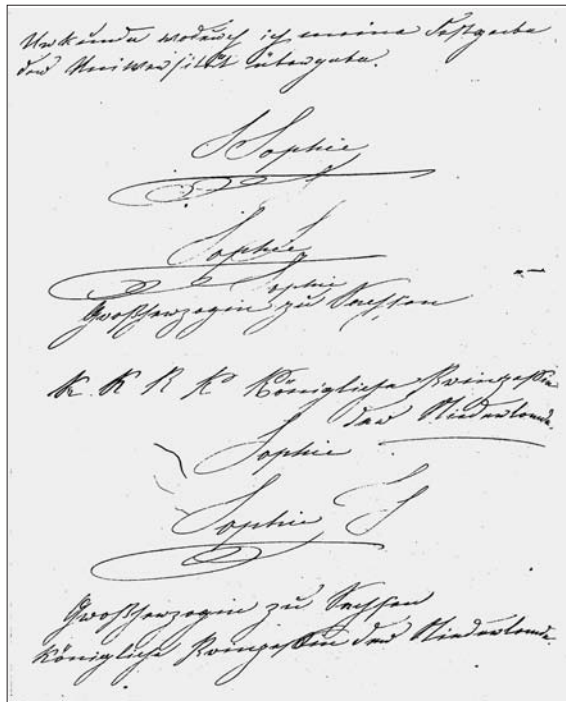 Urkunde wodurch ich meine Festgabe
der Universität übergebe.
S Sophie
Sophie S
Sophie
Großherzogin zu Sachsen
K K K K Königliche Prinzessin
der Niederlande.
Sophie
Sophie S
Großherzogin zu Sachsen
Königliche Prinzessin der Niederlande.